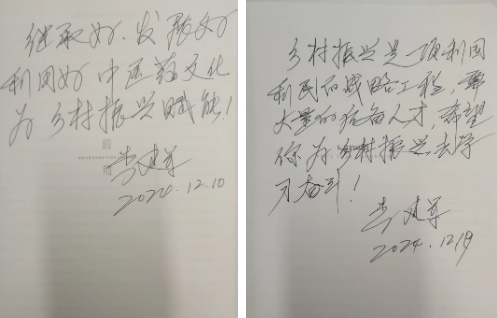 继承好、发扬好
利用好中医药文化
为乡村振兴赋能！
李建军
2024.12.10
乡村振兴是一项利国
利民的战略工程，需
大量的后备人才，希望
你为乡村振兴去学
习奋斗！
李建军
2024.12/9